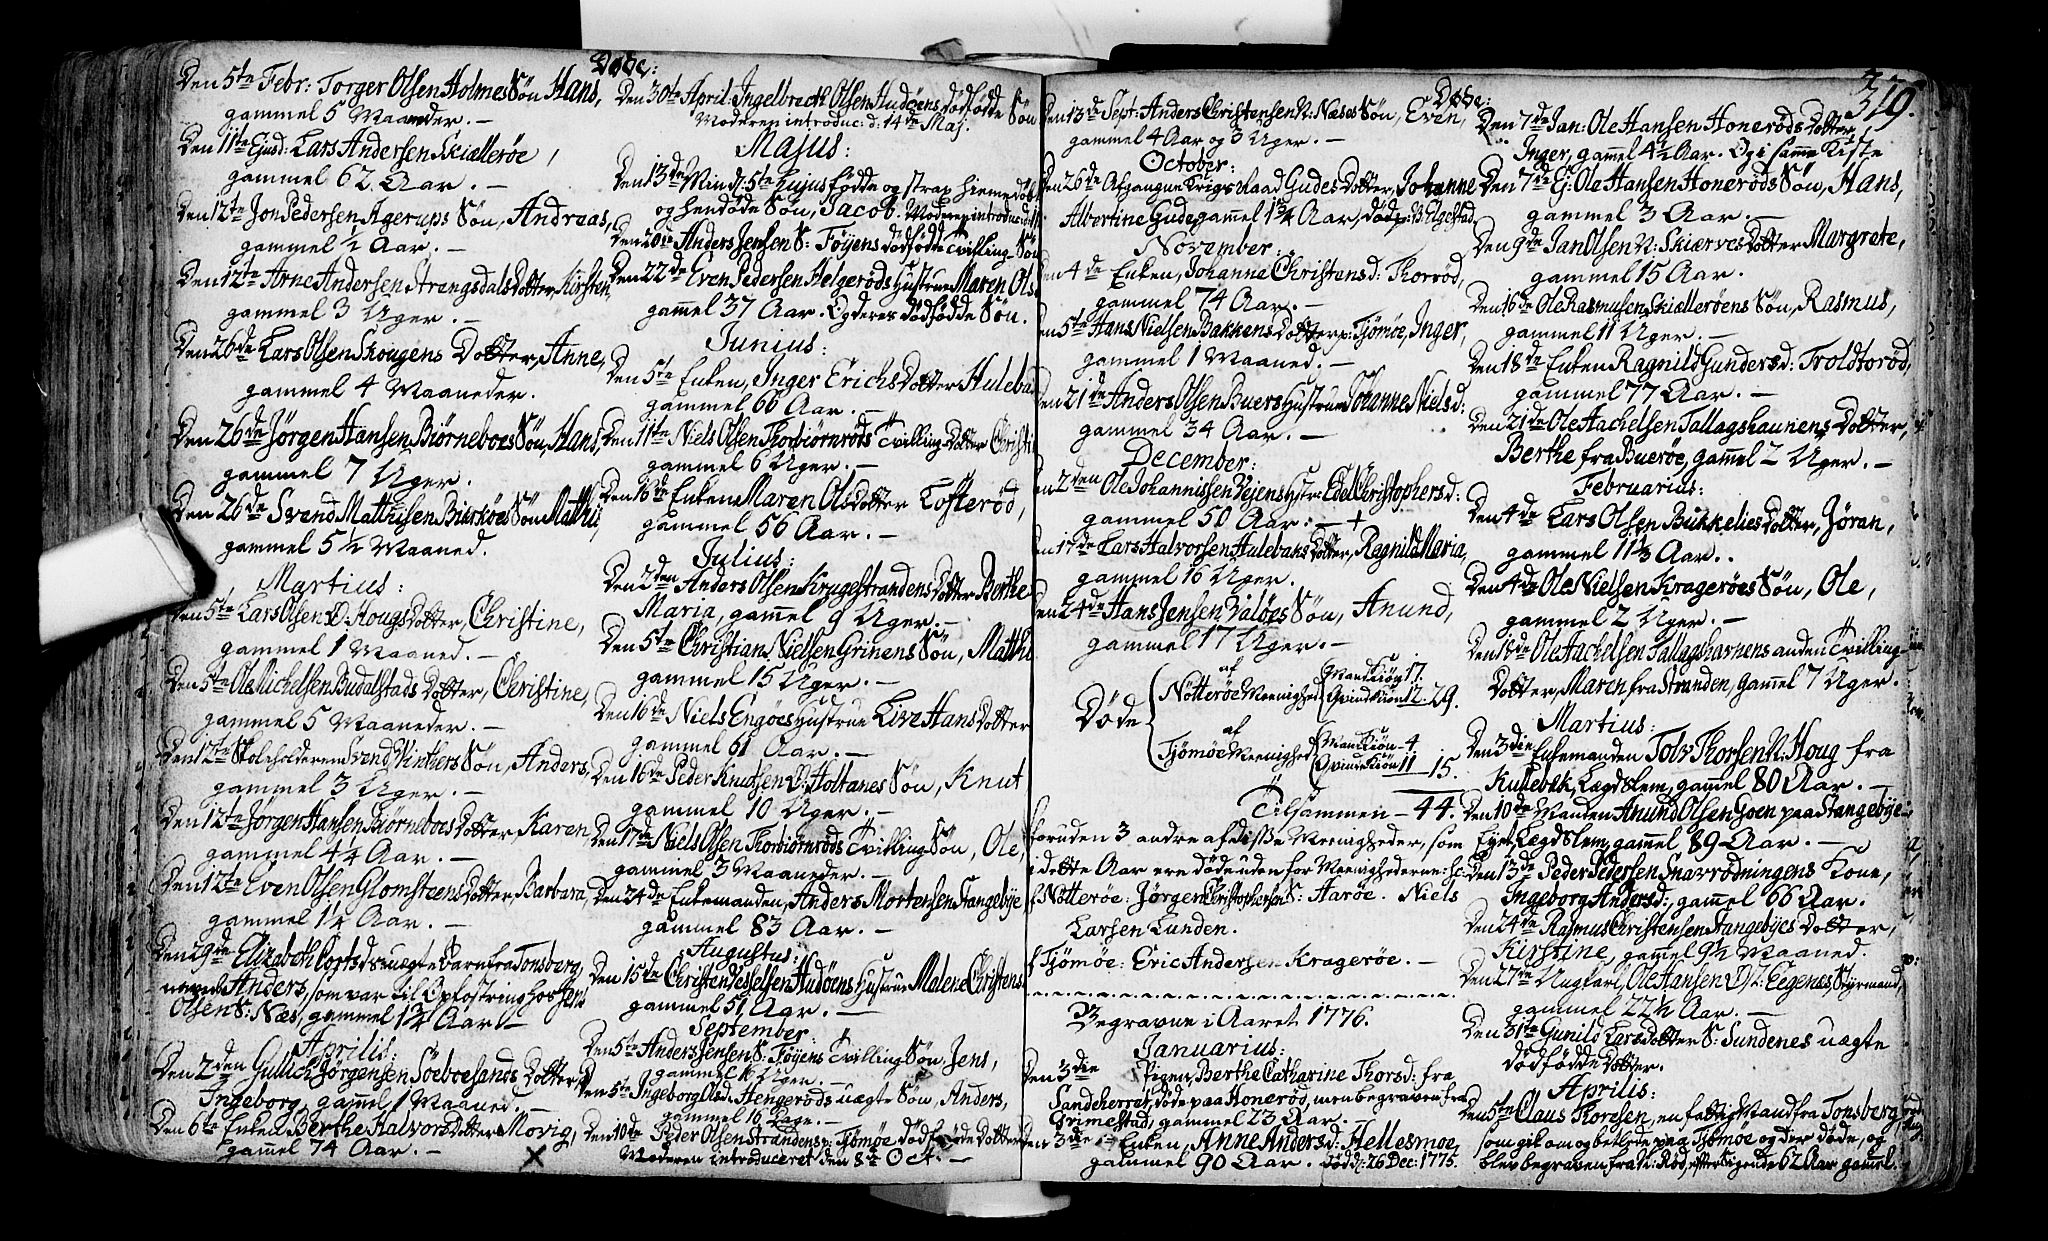 Døde:
Den 5te Febr: Torger Olsen Holmes Søn Hans,
gammel 5 Maaneder. –
Den 11te Ejusd: Lars Andersen Skiællerøe,
gammel 62 Aar. –
Den 12te Jon Pedersen Agerups Søn, Andreas,
gammel ½ Aar. –
Den 12te Arne Andersen Strengsdals Dotter, Kirsten,
gammel 3 Uger. –
Den 26de Lars Olsen Skougens Dotter, Anne,
gammel 4 Maaneder.
Den 26de Jørgen Hansen Biørneboes Søn, Hans,
gammel 7 Uger.
Den 26de Svend Mathisen Buerøes Søn Mathis,
gammel 5½ Maaned.
Martius:
Den 5te Lars Olsen Ø: Hougs Dotter, Christine,
gammel 1 Maaned. –
Den 5te Ole Michelsen Budalstads Dotter, Christine,
gammel 5 Maaneder. –
Den 12te Skoleholderen Svend Winthers Søn, Anders,
gammel 3 Uger. –
Den 12te Jørgen Hansen Biørneboes Dotter, Karen,
gammel 4¼ Aar. –
Den 12te Even Olsen Glomsteens Dotter, Barbara,
gammel 1¼ Aar. –
Den 29de Elizabeth Corts d: uægte Barn fra Tonsberg,
navnl: Anders, som var til Opfostring hos
Olsen S: Næs, gammel 1¾ Aar. –
Aprilis:
Den 2den Gullich Jørgensen Søeboesands Dotter,
Ingeborg, gammel 1 Maaned. –
Den 6te Enken Berthe Halvors Dotter Movig,
gammel 74 Aar. –
Den 30te April: Ingelbrecth Olsen Hudøens dødfødde Søn
Moderen introduc: d: 14de Maj.
Majus:
Den 13de Min d: 5te hujus fødde og strax hiemedøbt
og hendøde Søn, Jacob. Moderen introduc:
Den 20de Anders Jensen S: Føyens dødfødde Tvilling-Søn
Den 22de Even Pedersen Helgerøds Hustrue Maren Ols
gammel 37 Aar. Og deres dødfødde Søn.
Junius:
Den 5te Enken, Inger Erichs Dotter Hulebak
gammel 66 Aar. –
Den 11te Niels Olsen Thorbiørnrøds Tvilling-Dotter Christi
gammel 6 Uger. –
Den 16de Enken Maren Ols Dotter Lofterød,
gammel 56 Aar. –
Julius:
Den 2den Anders Olsen Krugestrandens Dotter Berthe
Maria, gammel 9 Uger. –
Den 5te Christian Nielsen Grinens Søn, Matthi
gammel 15 Uger. –
Den 16de Niels Engøes Hustrue Live Hans Dotter
gammel 61 Aar. –
Den 16de Peder Knutsen Ø: Holtanes Søn, Knut
gammel 10 Uger. –
Den 17de Niels Olsen Thorbiørnrøds Tvilling Søn, Ole,
gammel 3 Maaneder. –
Den 24de Enkemanden, Anders Mortensen Stangebye
gammel 83 Aar. –
Augustus:
Den 15de Christen Vesselsen Hudøens Hustrue Malene Christens
gammel 51 Aar. –
September:
Den 5te Anders Jensen S: Føyens Tvilling Søn Jens,
gammel 16 Uger. –
Den 5te Ingeborg Olsd: Hengerøds uægte Søn, Anders,
gammel 16 Dage. –
Den 10de Peder Olsen Strandens p: Tjømøe dødfødde Dotter
Moderen introduceret den 8de Oct. –
Døde:
319.
Den 13de Sept: Anders Christensen N: Næses Søn, Even,
gammel 4 Aar og 3 Uger. –
October:
Den 26de Afgangne Krigsraad Gudes Dotter, Johanne
Albertine Gude gammel 1¾ Aar, død p: Elgestad.
November:
Den 4de Enken, Johanne Christensd: Thorød,
gammel 74 Aar. –
Den 5te Hans Nielsen Bakkens Dotter p: Tjømøe, Inger,
gammel 1 Maaned. –
Den 21de Anders Olsen Buers Hustrue Johanne Nielsd:
gammel 34 Aar. –
December:
Den 2den Ole Johannissen Vejens Hustr: Edel Christophersd:
gammel 50 Aar: – +
Den 17de Lars Halvorsen Hulebaks Dotter, Ragnild Maria,
gammel 16 Uger.
Den 24de Hans Jensen Valøes Søn, Anund,
gammel 17 Uger. –
Døde
af Nøtterøe Meenighed Mandkiøn 17. Qvindekiøn 12. 29.
af Tjømøe Meenighed Mandkiøn – 4. Qvindekiøn 11 – 15.
Tilsammen – 44.
foruden 3 andre af disse Meenigheder, som
i dette Aar ere døde uden for Meenighederne: sc:
f Nøtterøe: Jørgen Christophersen S: Aarøe. Niels
Larsen Lunden.
f Tjømøe: Eric Andersen Kragerøe. –
Begravne i Aaret 1776.
Januarius:
Den 3die Pigen, Berthe Catharine Thorsd: fra
Sandeherret, døde paa Honerød, men begraven fra
Grimestad, gammel 23 Aar. –
Den 3die Enken, Anne Andersd: Hellesmoe,
gammel 90 Aar. død d: 26 Dec: 1775.
Den 7de Jan: Ole Hansen Honerøds Dotter,
Inger, gammel 4½ Aar. Og i samme Kiste
Den 7de Ej: Ole Hansen Honerøds Søn, Hans,
gammel 3 Aar. –
Den 9de Jan Olsen N: Skiærves Dotter Margrete,
gammel 15 Aar.
Den 16de Ole Rasmusen Skiællerøens Søn, Rasmus,
gammel 11 Uger. –
Den 18de Enken Ragnild Gundersd: Troldtorød,
gammel 77 Aar. –
Den 21de Ole Hachelsen Tallagshaunens Dotter,
Berthe fra Buerøe, gammel 2 Uger. –
Februarius:
Den 4de Lars Olsen Bukkelies Dotter, Jøran,
gammel 11⅓ Aar. .
Den 4de Ole Nielsen Kragerøes Søn, Ole,
gammel 2 Uger. –
Den Ole Hachelsen Tallagshavnens anden Tvilling-
Dotter, Maren fra Stranden, gammel 7 Uger.
Martius:
Den 3die Enkemanden Tolv Thorsen N: Houg fra
Kullebæk, Lægdslem, gammel 80 Aar. –
Den 10de Manden Anund Olsen Goen paa Stangebye-
Eyet, Lægdslem, gammel 89 Aar. –
Den 13de Peder Pedersen Snarrødningens Kone,
Ingeborg Andersd: gammel 66 Aar.
Den 24de Rasmus Christensen Stangebyes Dotter,
Kirstine, gammel 9½ Maaned.
Den 27de Ungkarl, Ole Hansen Eegenes, Styrmand,
gammel 22½ Aar. –
Den 31te Gunild Larsdotter S: Sundenes uægte
dødfødde Dotter.
Aprilis:
Den 5te Claus Thoresen, en fattig Mand fra Tonsberg,
som gik om og betlede paa Tjømøe og der døde, og
blev begraven fra N: Rød, efter Sigende 62 Aar gammel.